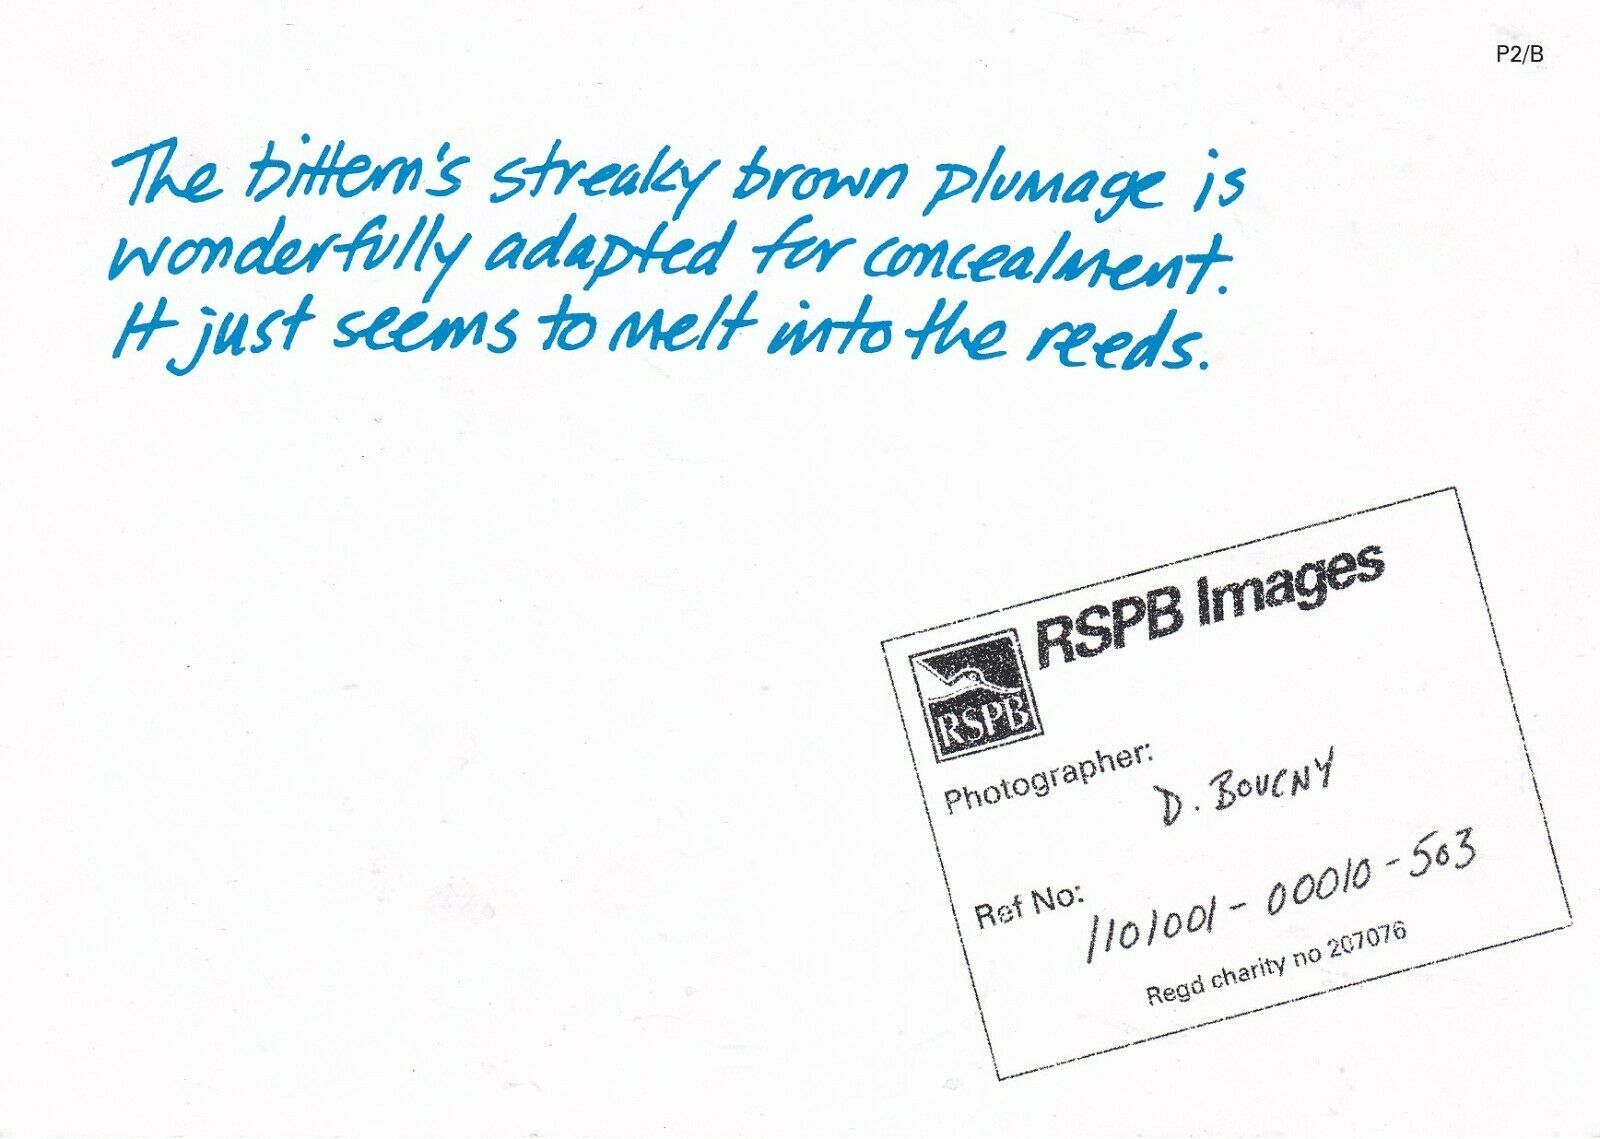 P2/B
The bittern's streaky brown plumage is
wonderfully adapted for concealment.
It just seems to melt into the reeds.
RSPB Images
RSPB
Photographer:
D. BOUCNY
Ref No:
1101001-00010-503
Regd charity no 207076